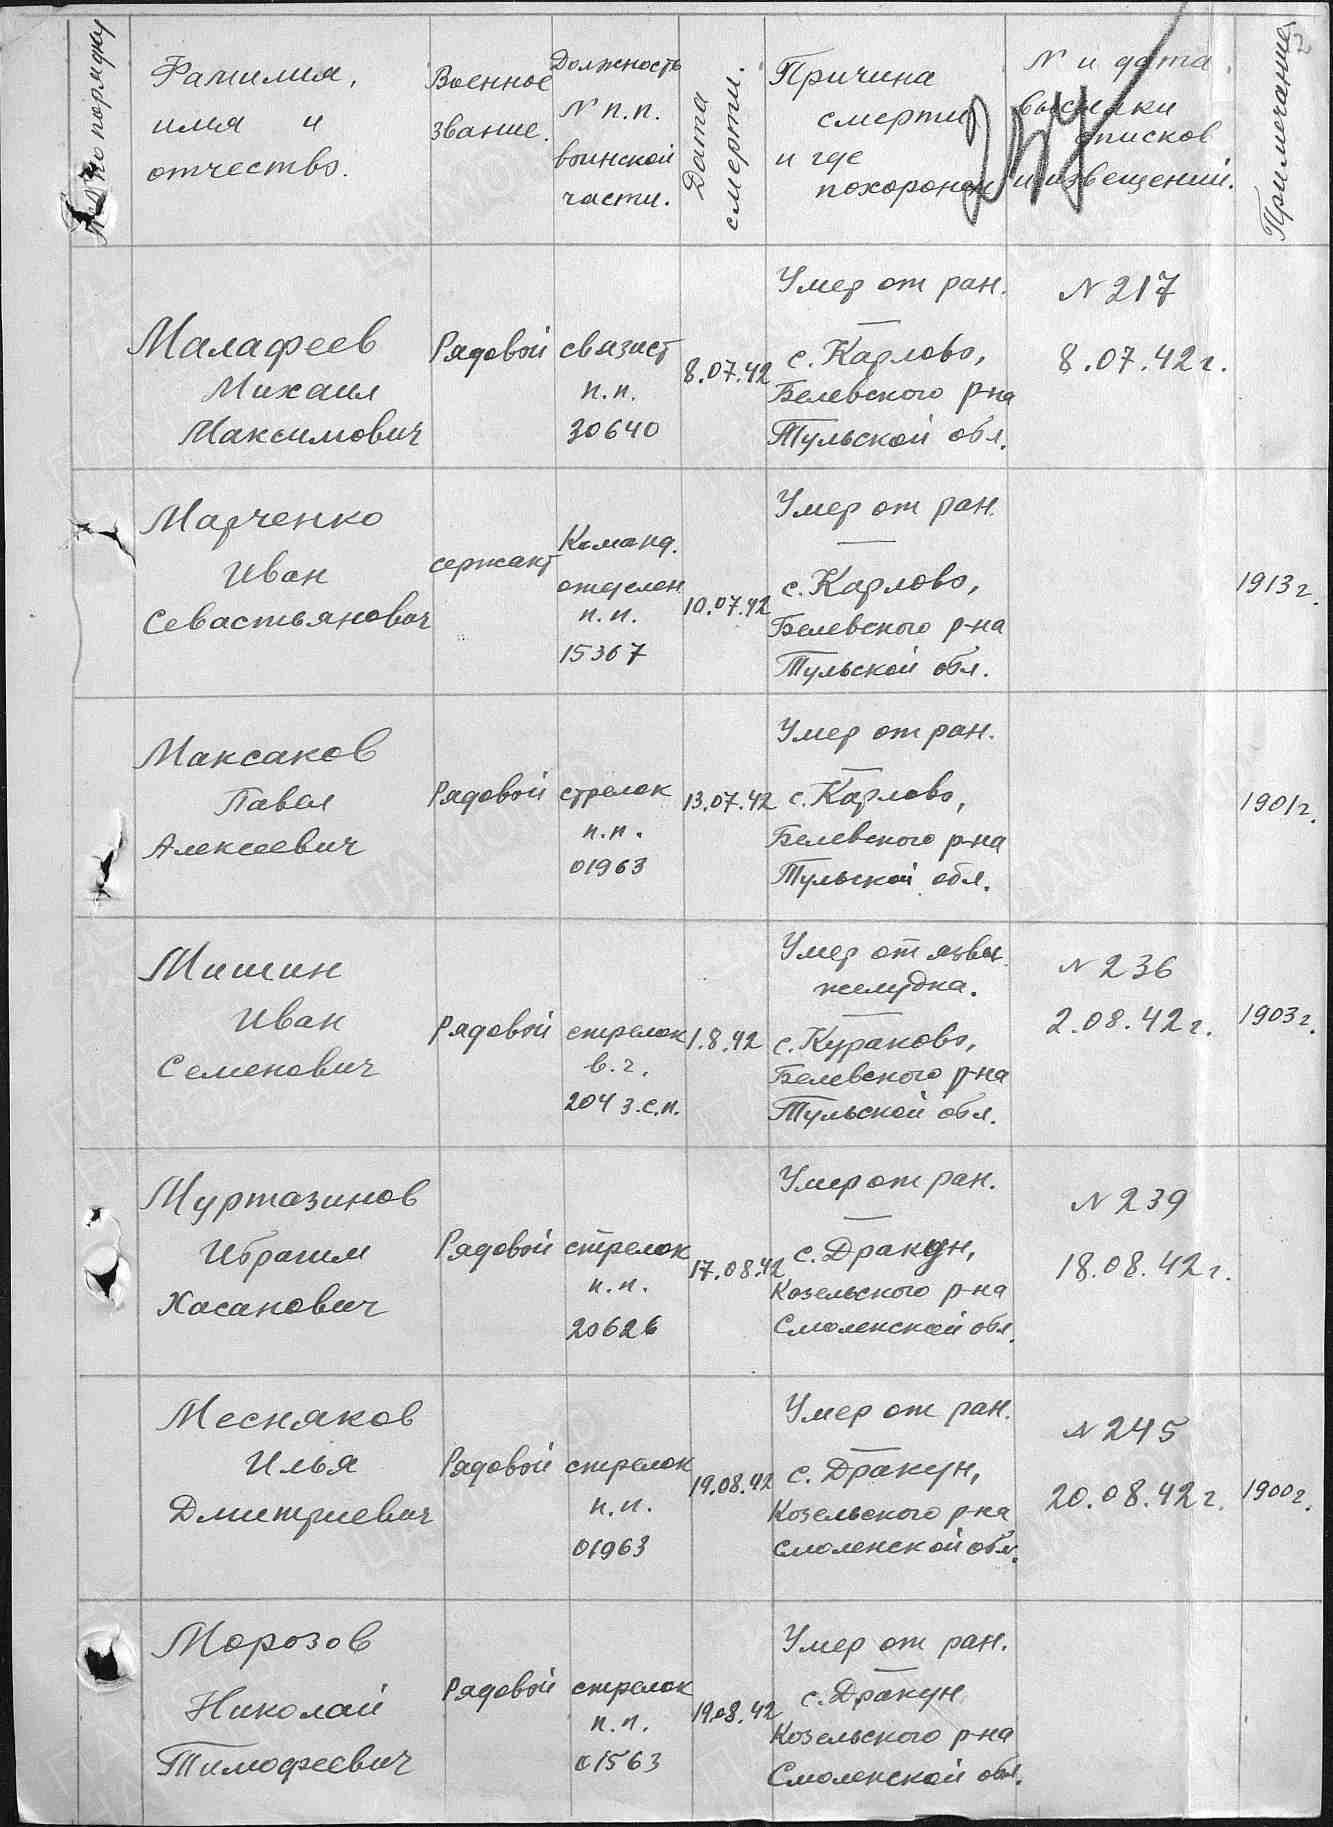 № по порядку
Фамилия,
имя и
отчество.
Военное
звание.
Должность
N п.п.
воинской
части.
Дата
смерти.
Причина
смерти
и где
похоронен
N и дата
высылки
списков
и извещений.
Примечание
2
Малафеев
Михаил
Максимович
Рядовой
связист
п.п.
30640
8.07.42
Умер от ран.
с. Карлово,
Белевского р-на
Тульской обл.
N 217
8.07.42 г.
Марченко
Иван
Севастьянович
сержант
Команд.
отделен.
п.п.
15367
10.07.42
Умер от ран.
с. Карлово,
Белевского р-на
Тульской обл.
1913 г.
Максаков
Павел
Алексеевич
Рядовой
стрелок
п.п.
01963
13.07.42
Умер от ран.
с. Карлово,
Белевского р-на
Тульской обл.
1901 г.
Мишин
Иван
Семенович
Рядовой
стрелок
в.ч.
204 з.с.п.
1.8.42
Умер от язвы
желудка.
с. Кураково,
Белевского р-на
Тульской обл.
N 236
2.08.42 г.
1903 г.
Муртазинов
Ибрагим
Хасанович
Рядовой
стрелок
п.п.
20626
17.08.42
Умер от ран.
с. Дракун,
Козельского р-на
Смоленской обл.
N 239
18.08.42 г.
Месняков
Илья
Дмитриевич
Рядовой
стрелок
п.п.
01963
19.08.42
Умер от ран.
с. Дракун,
Козельского р-на
Смоленской обл.
N 245
20.08.42 г.
1900 г.
Морозов
Николай
Тимофеевич
Рядовой
стрелок
п.п.
01563
19.08.42
Умер от ран.
с. Дракун
Козельского р-на
Смоленской обл.